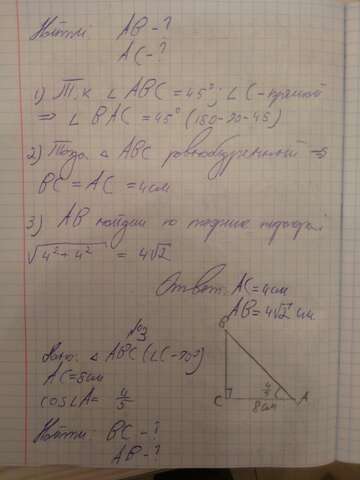 Найти: AB - ?
AC - ?
1) Т.к ∠ ABC = 45°; ∠ C - прямой
⇒ ∠ BAC = 45° (180-90-45)
2) Тогда △ ABC равнобедренный ⇒
BC = AC = 4см
3) AB найдём по теореме пифагора:
√4²+4² = 4√2
Ответ: AC = 4см
AB = 4√2 см.
№3
Дано: △ ABC (∠C-90°)
AC = 8см
cos∠A = 4/5
Найти: BC - ?
AB - ?
B
C
4/5
A
8см